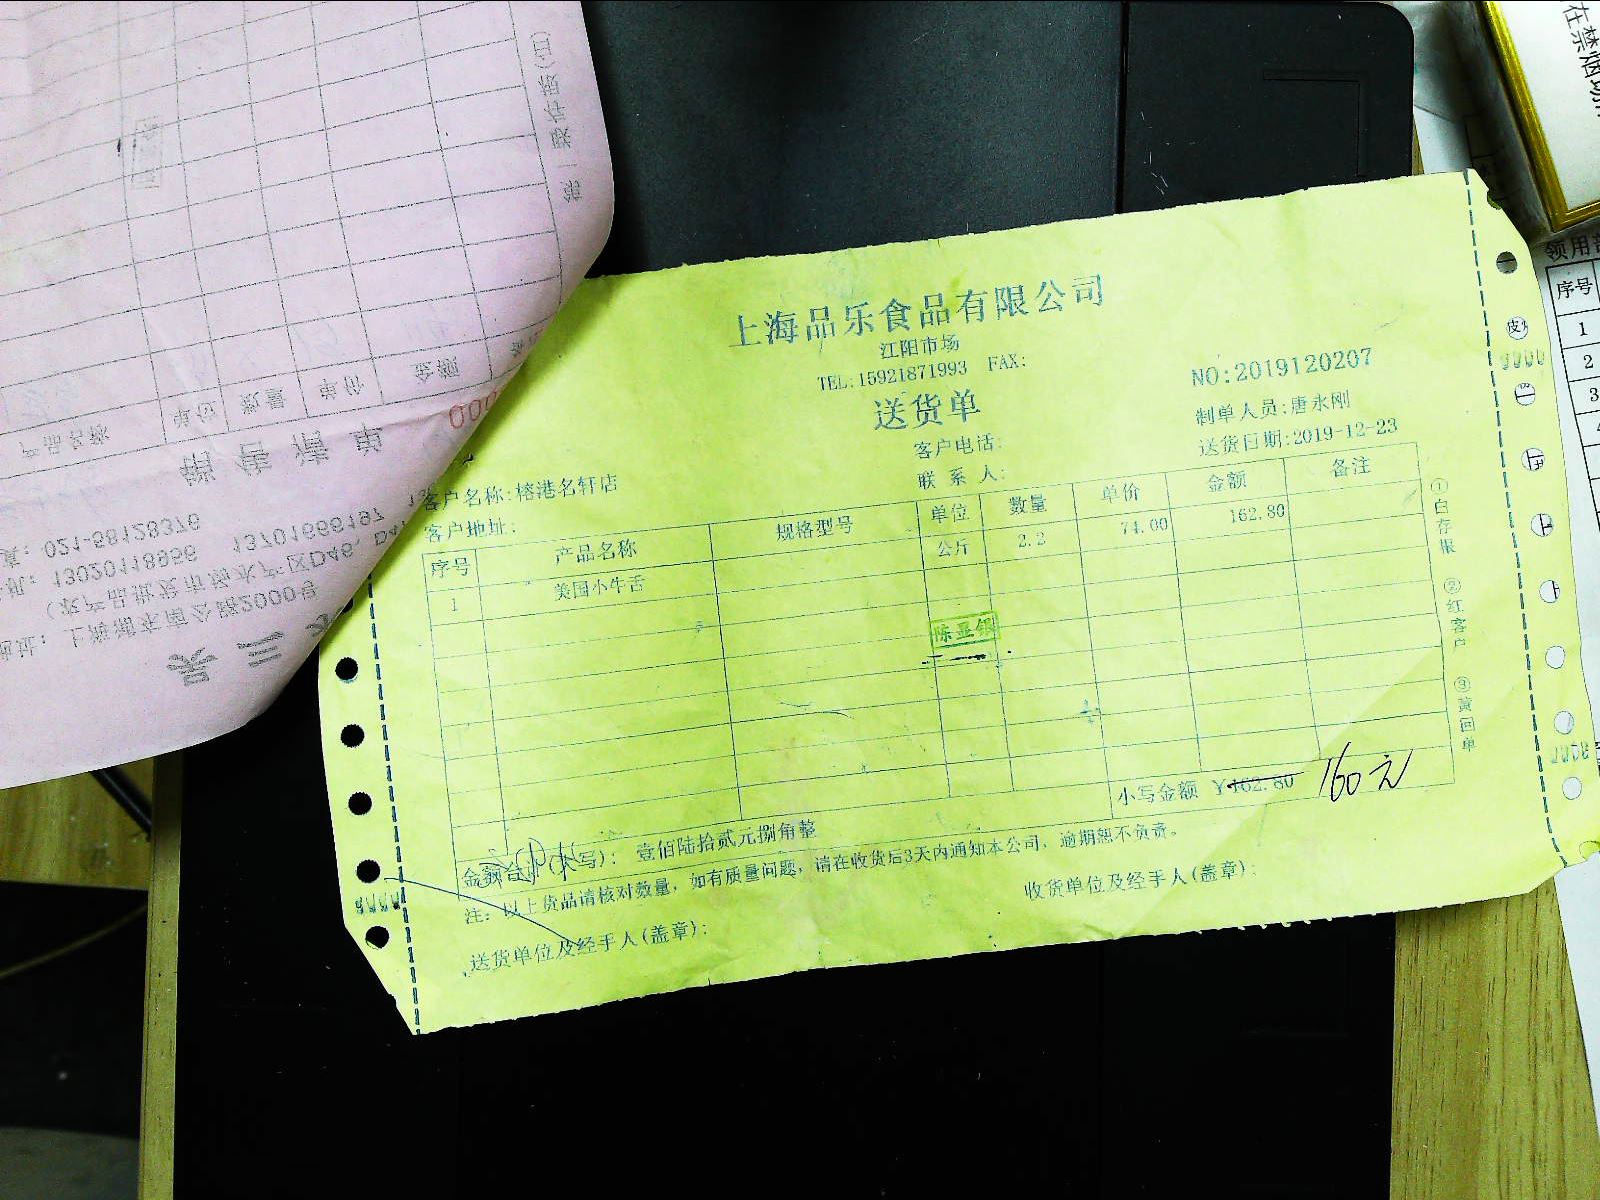 上海品乐食品有限公司
江阳市场
TEL:15921871993 FAX:
NO:2019120207
送货单
制单人员:唐永刚
客户电话:
送货日期:2019-12-23
客户名称:榕港名轩店
联系人:
客户地址:
序号 产品名称 规格型号 单位 数量 单价 金额 备注
1 美国小牛舌 公斤 2.2 74.00 162.80
陈亚银
小写金额 ¥162.80 160元
金额合计(大写): 壹佰陆拾贰元捌角整
注: 以上货品请核对数量, 如有质量问题, 请在收货后3天内通知本公司, 逾期恕不负责。
送货单位及经手人(盖章):
收货单位及经手人(盖章):
①白存根 ②红客户 ③黄回单
销售清单
产品名称 单位 数量 单价 金额
021-58128376
13020118956 13701666197
在禁烟场
领用
序号
1
2
3